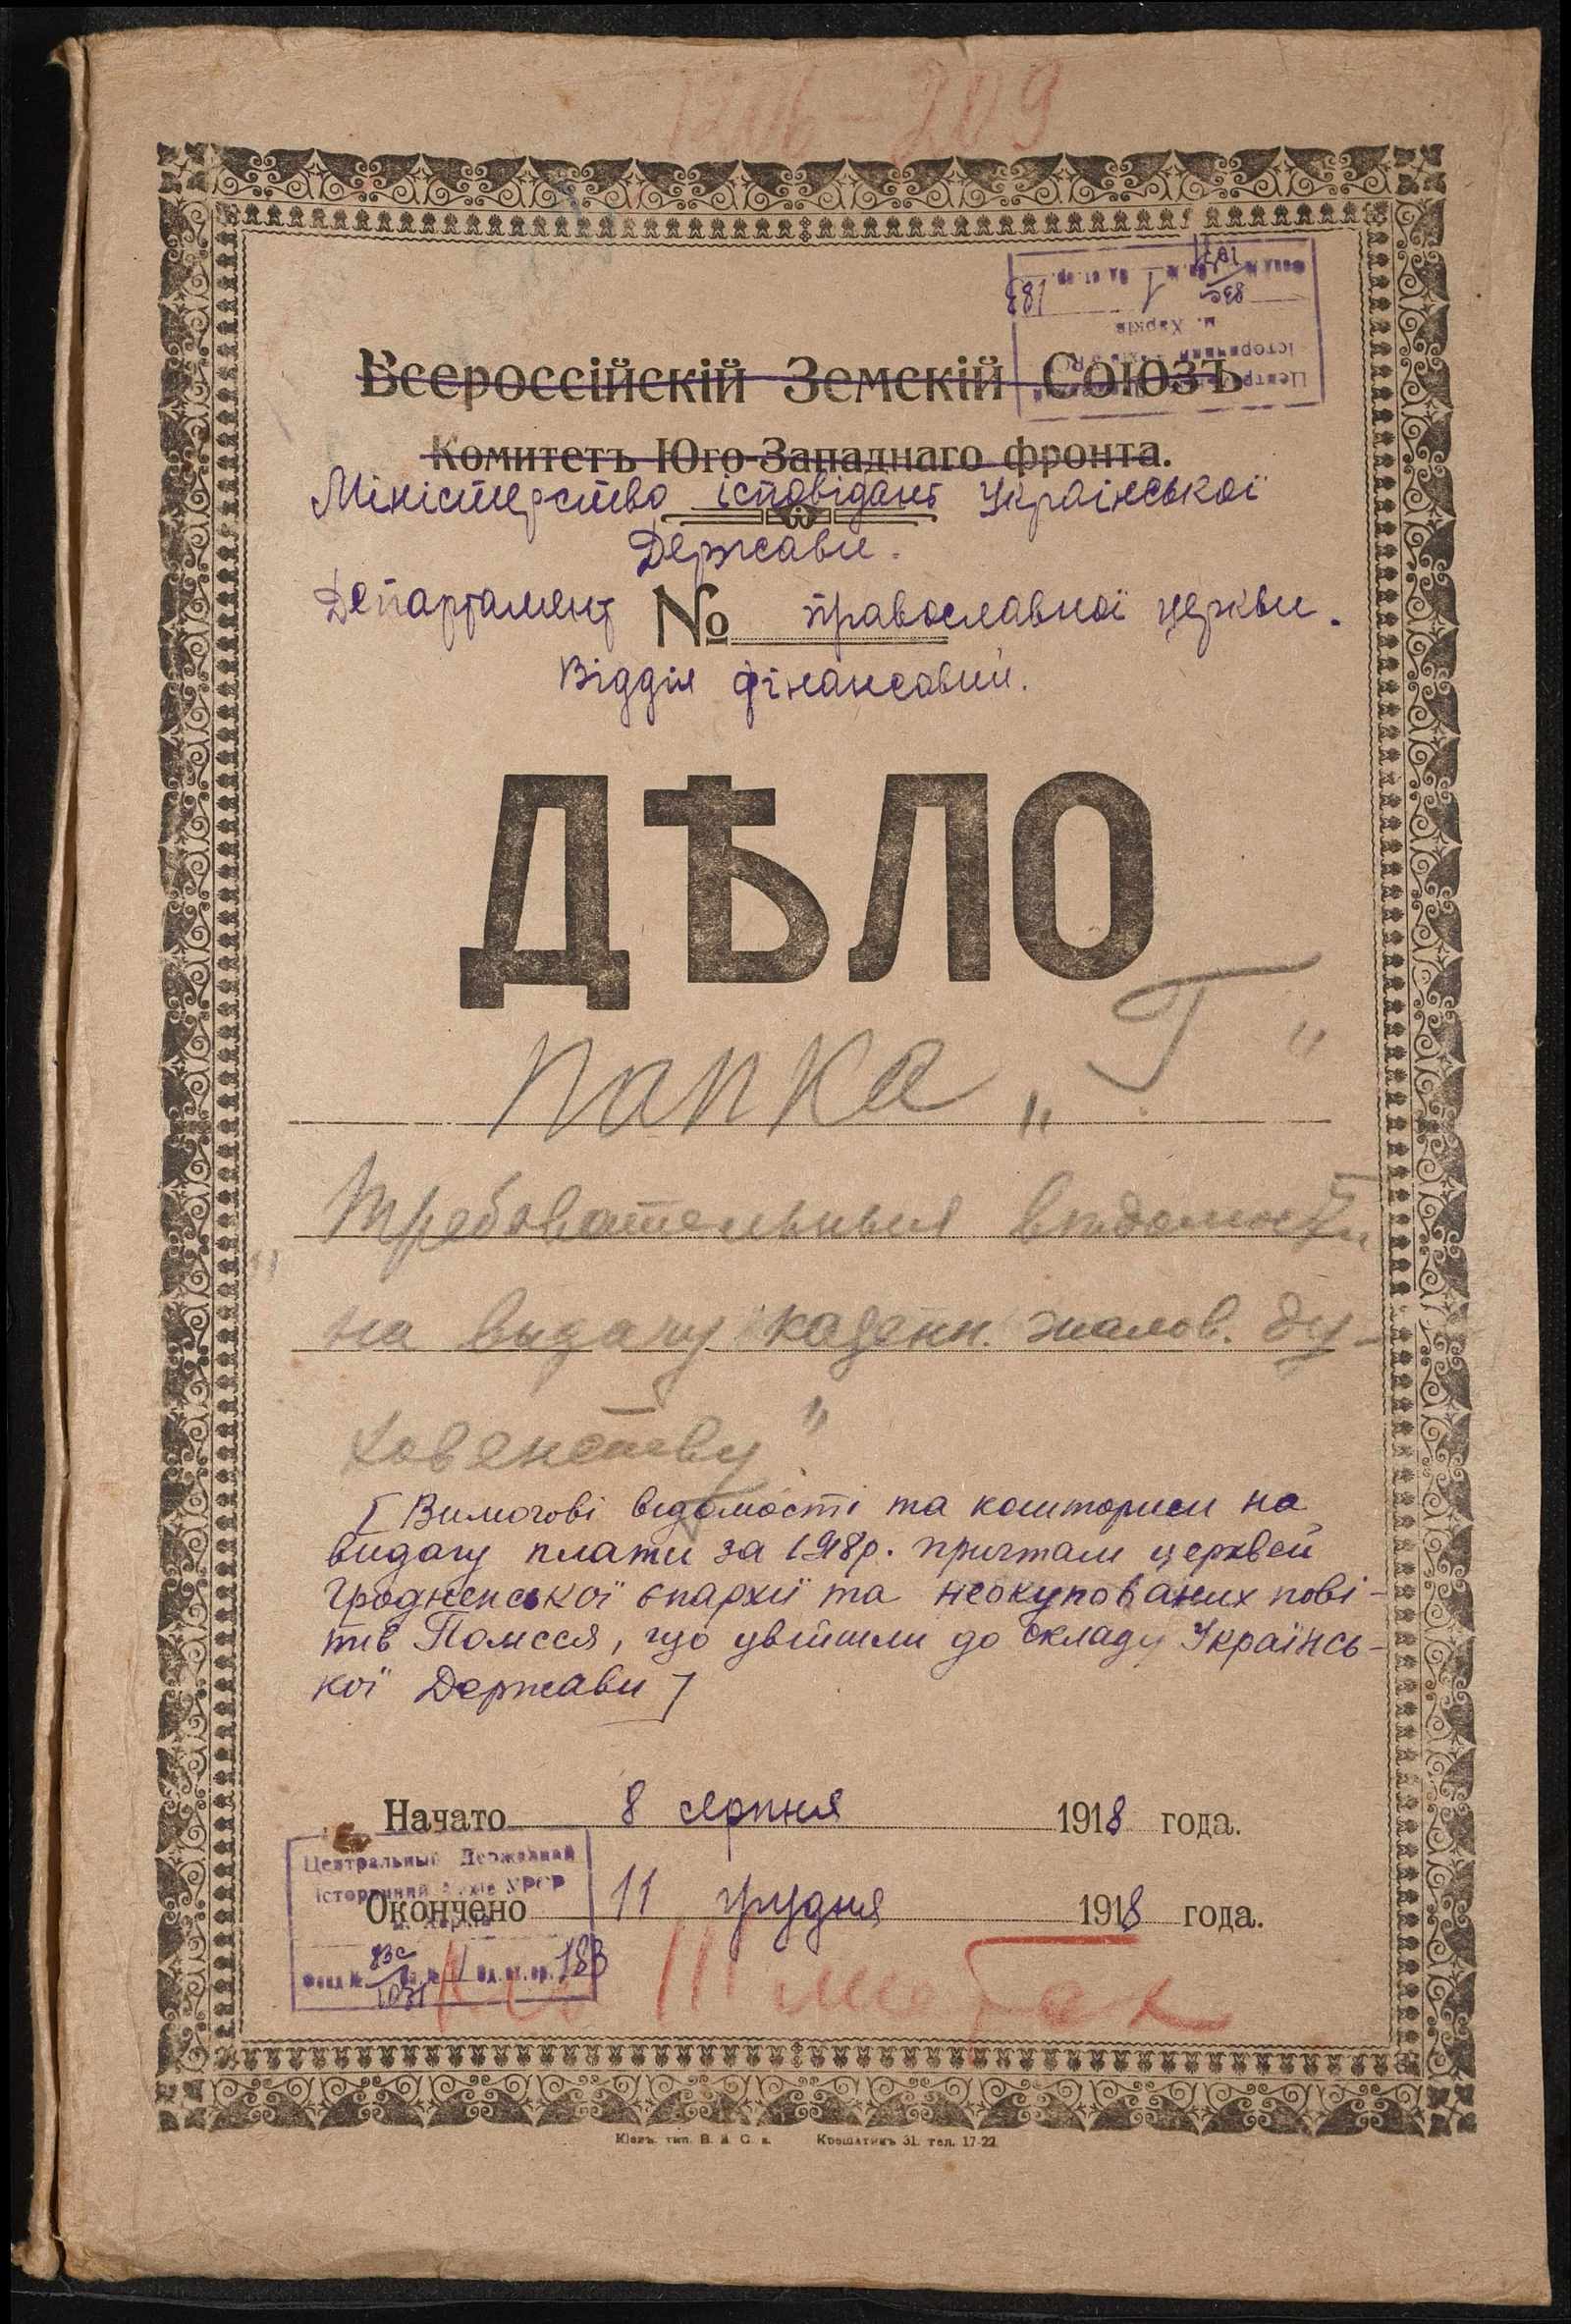 1206-209
Всероссійскій Земскій Союзъ
Комитетъ Юго-Западнаго фронта.
Міністерство ісповідань Української
Держави.
Департамент № православної церкви.
Відділ фінансовий.
ДѢЛО
папка „Г"
„Требовательныя вѣдомости
на выдачу казенн. жалов. ду-
ховенству"
[Вимогові відомості та кошториси на
видачу плати за 1918р. причтам церквей
Гродненської єпархії та неокупованих пові-
тів Полісся, що увійшли до складу Українсь-
кої Держави]
Начато 8 серпня 1918 года.
Окончено 11 грудня 1918 года.
Центральний Державний
історичний архів УРСР
м. Харків
Фонд № 1071 Оп. № 1 Од. зб. 183
Кіевъ. тип. Крещатикъ 31. тел. 17-22